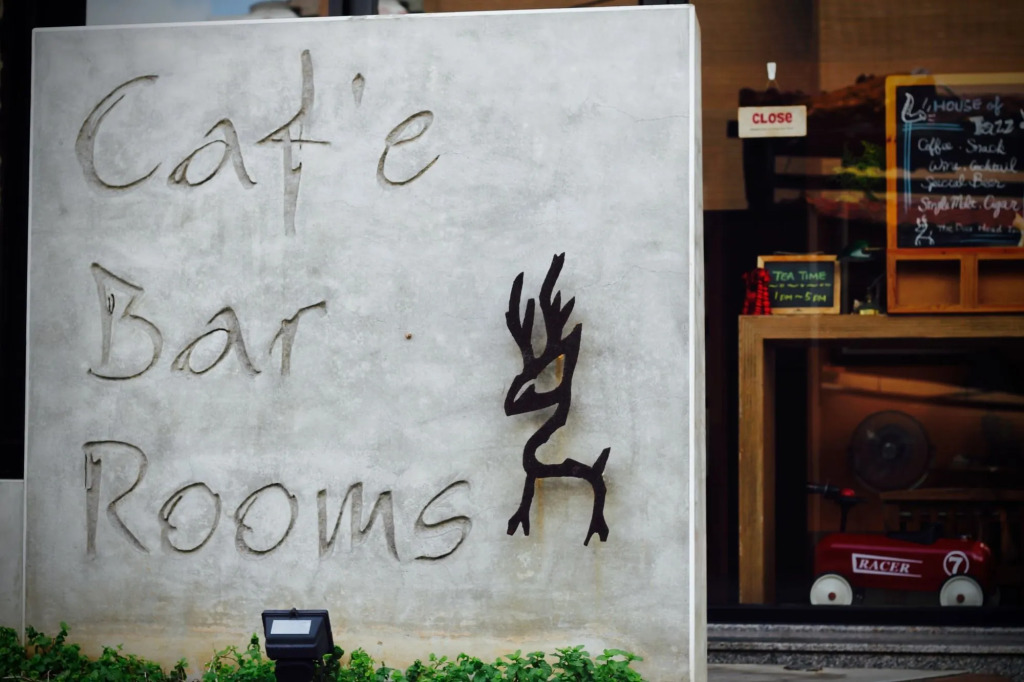 Caf'e
Bar
Rooms
CLOSE
HOUSE of
Jazz
Coffee. Snack
Wine. Cocktail
Special Beer
Single Malt. Cigar
The Deer Head
TEA TIME
1 PM ~ 5 PM
RACER
7